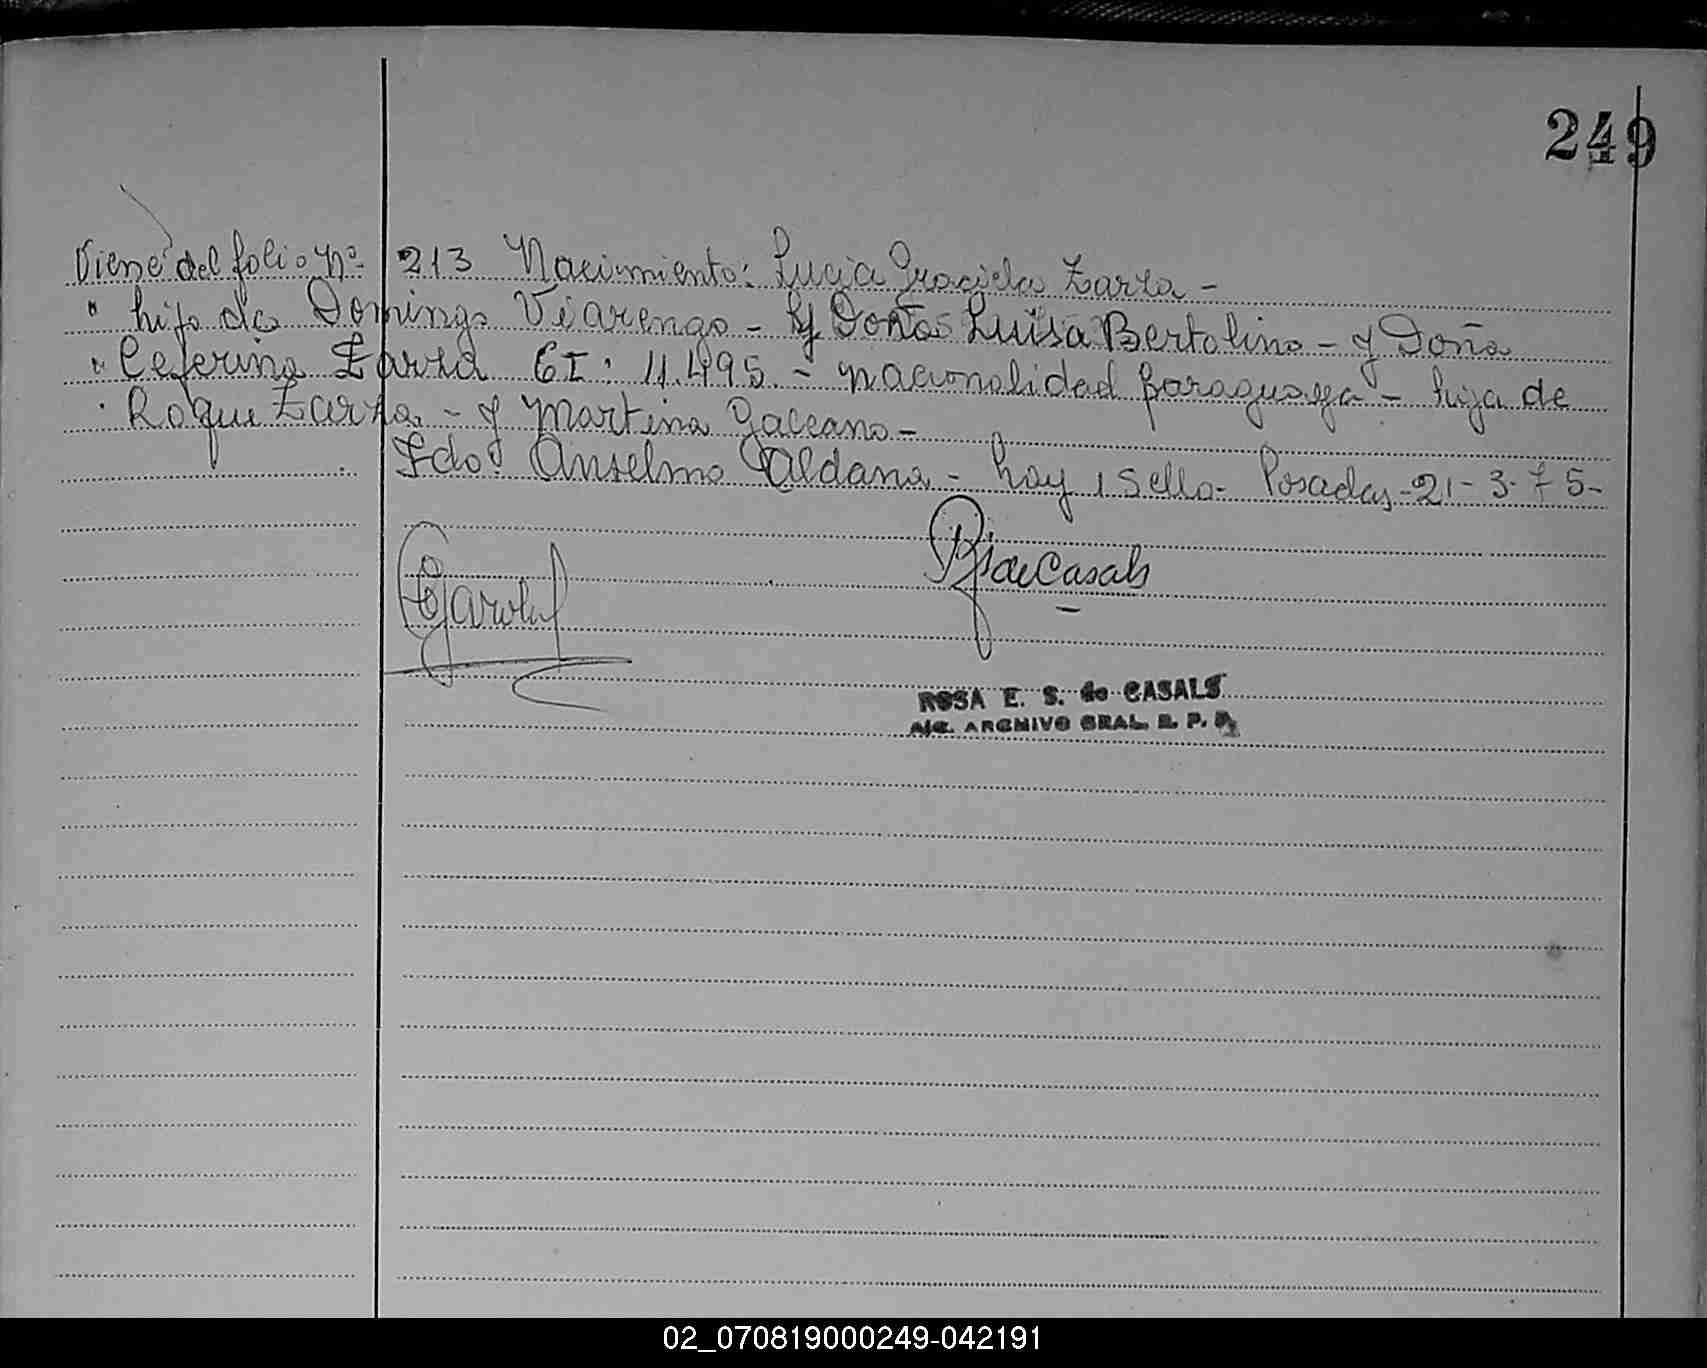 249
Viene del folio Nº 213 Nacimiento: Lucia Graciela Zarza -
" hijo de Domingo Viarengo - y Doña Luisa Bertolino - y Doña
" Ceferina Zarza CI: 11.495 - nacionalidad paraguaya - hija de
" Roque Zarza - y Martina Gaceano -
Fdo: Anselmo Aldana - hay 1 sello - Posadas - 21 - 3 - 75 -
de Casals
ROSA E. S. de CASALS
A/C. ARCHIVO GRAL. R. P. P.
02_070819000249-042191